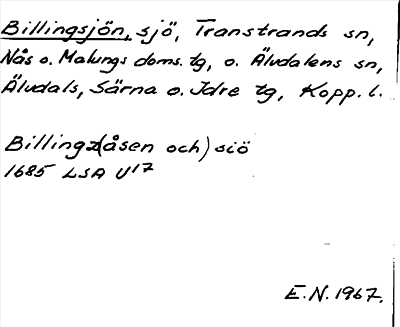 Billingsjön, sjö, Transtrands sn,
Nås o. Malungs doms. tg, o. Älvdalens sn,
Älvdals, Särna o. Idre tg, Kopp. l.
Billingz(åsen och) siö
1685 LSA U17
E.N. 1967.